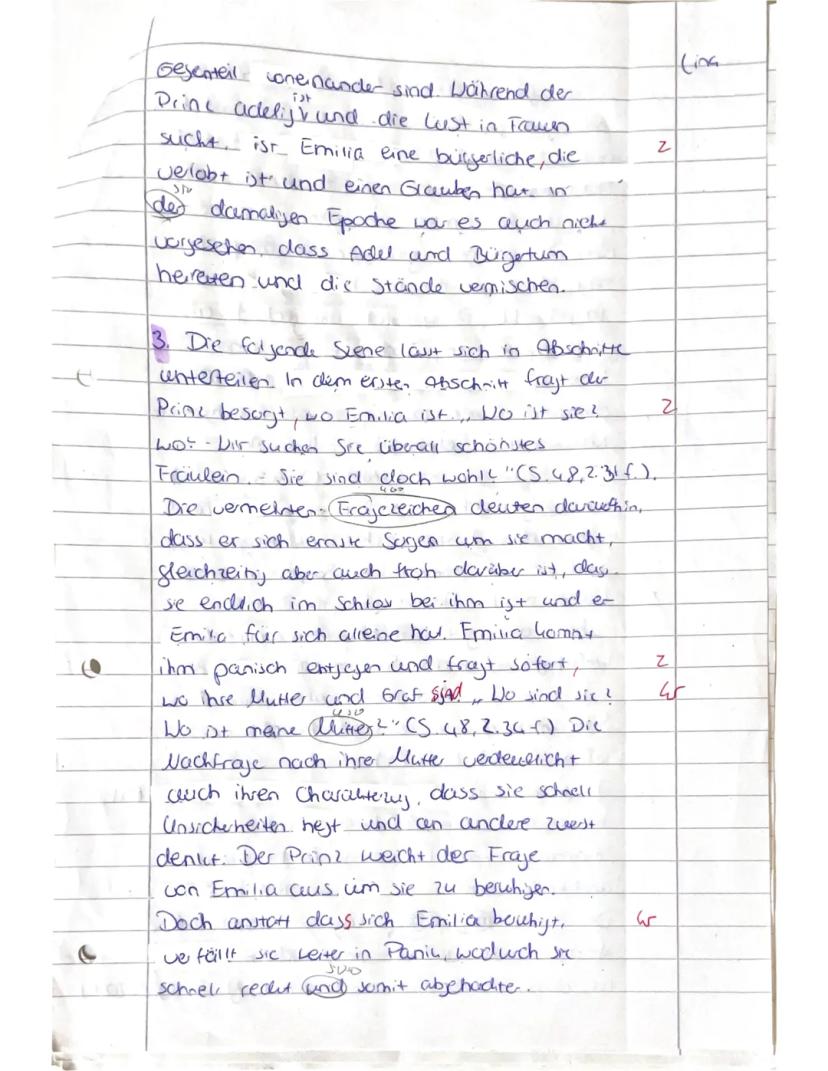 Gegenteil voneinander sind. Während der
Prinz adelig ist und die Lust in Frauen
sucht, ist Emilia eine bürgerliche, die
verlobt ist und einen Glauben hat. In
der damaligen Epoche war es auch nicht
vorgesehen, dass Adel und Bürgertum
heiraten und die Stände vermischen.
3. Die folgende Szene lässt sich in Abschnitte
unterteilen. In dem ersten Abschnitt fragt der
Prinz besorgt, wo Emilia ist „Wo ist sie?
wo? - Wir suchen Sie überall schönstes
Fräulein. - Sie sind doch wohl?" (S. 48, Z. 31 f.).
Die vermehrten Fragezeichen deuten daraufhin,
dass er sich ernste Sorgen um sie macht,
gleichzeitig aber auch froh darüber ist, dass
sie endlich im Schloss bei ihm ist und er
Emilia für sich alleine hat. Emilia kommt
ihm panisch entgegen und fragt sofort,
wo ihre Mutter und Graf sind „Wo sind sie?
Wo ist meine Mutter?" (S. 48, Z. 34 f.) Die
Nachfrage nach ihrer Mutter verdeutlicht
auch ihren Charakterzug, dass sie schnell
Unsicherheiten hegt und an andere zuerst
denkt. Der Prinz weicht der Frage
von Emilia aus um sie zu beruhigen.
Doch anstatt dass sich Emilia beruhigt,
verfällt sie weiter in Panik, wodurch sie
schnell redet und somit abgehackter.